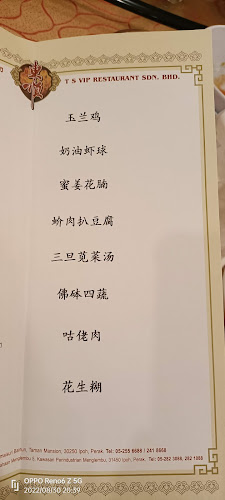 T S VIP RESTAURANT SDN. BHD.
玉兰鸡
奶油虾球
蜜姜花腩
蚧肉扒豆腐
三旦苋菜汤
佛砵四蔬
咕佬肉
花生糊
Taman Mansion, 30200 Ipoh, Perak. Tel: 05-255 6688 / 241 8688
Kawasan Perindustrian Menglembu, 31450 Ipoh, Perak. Tel: 05-282 3088, 282 1088
OPPO Reno6 Z 5G
2022/08/30 20:39